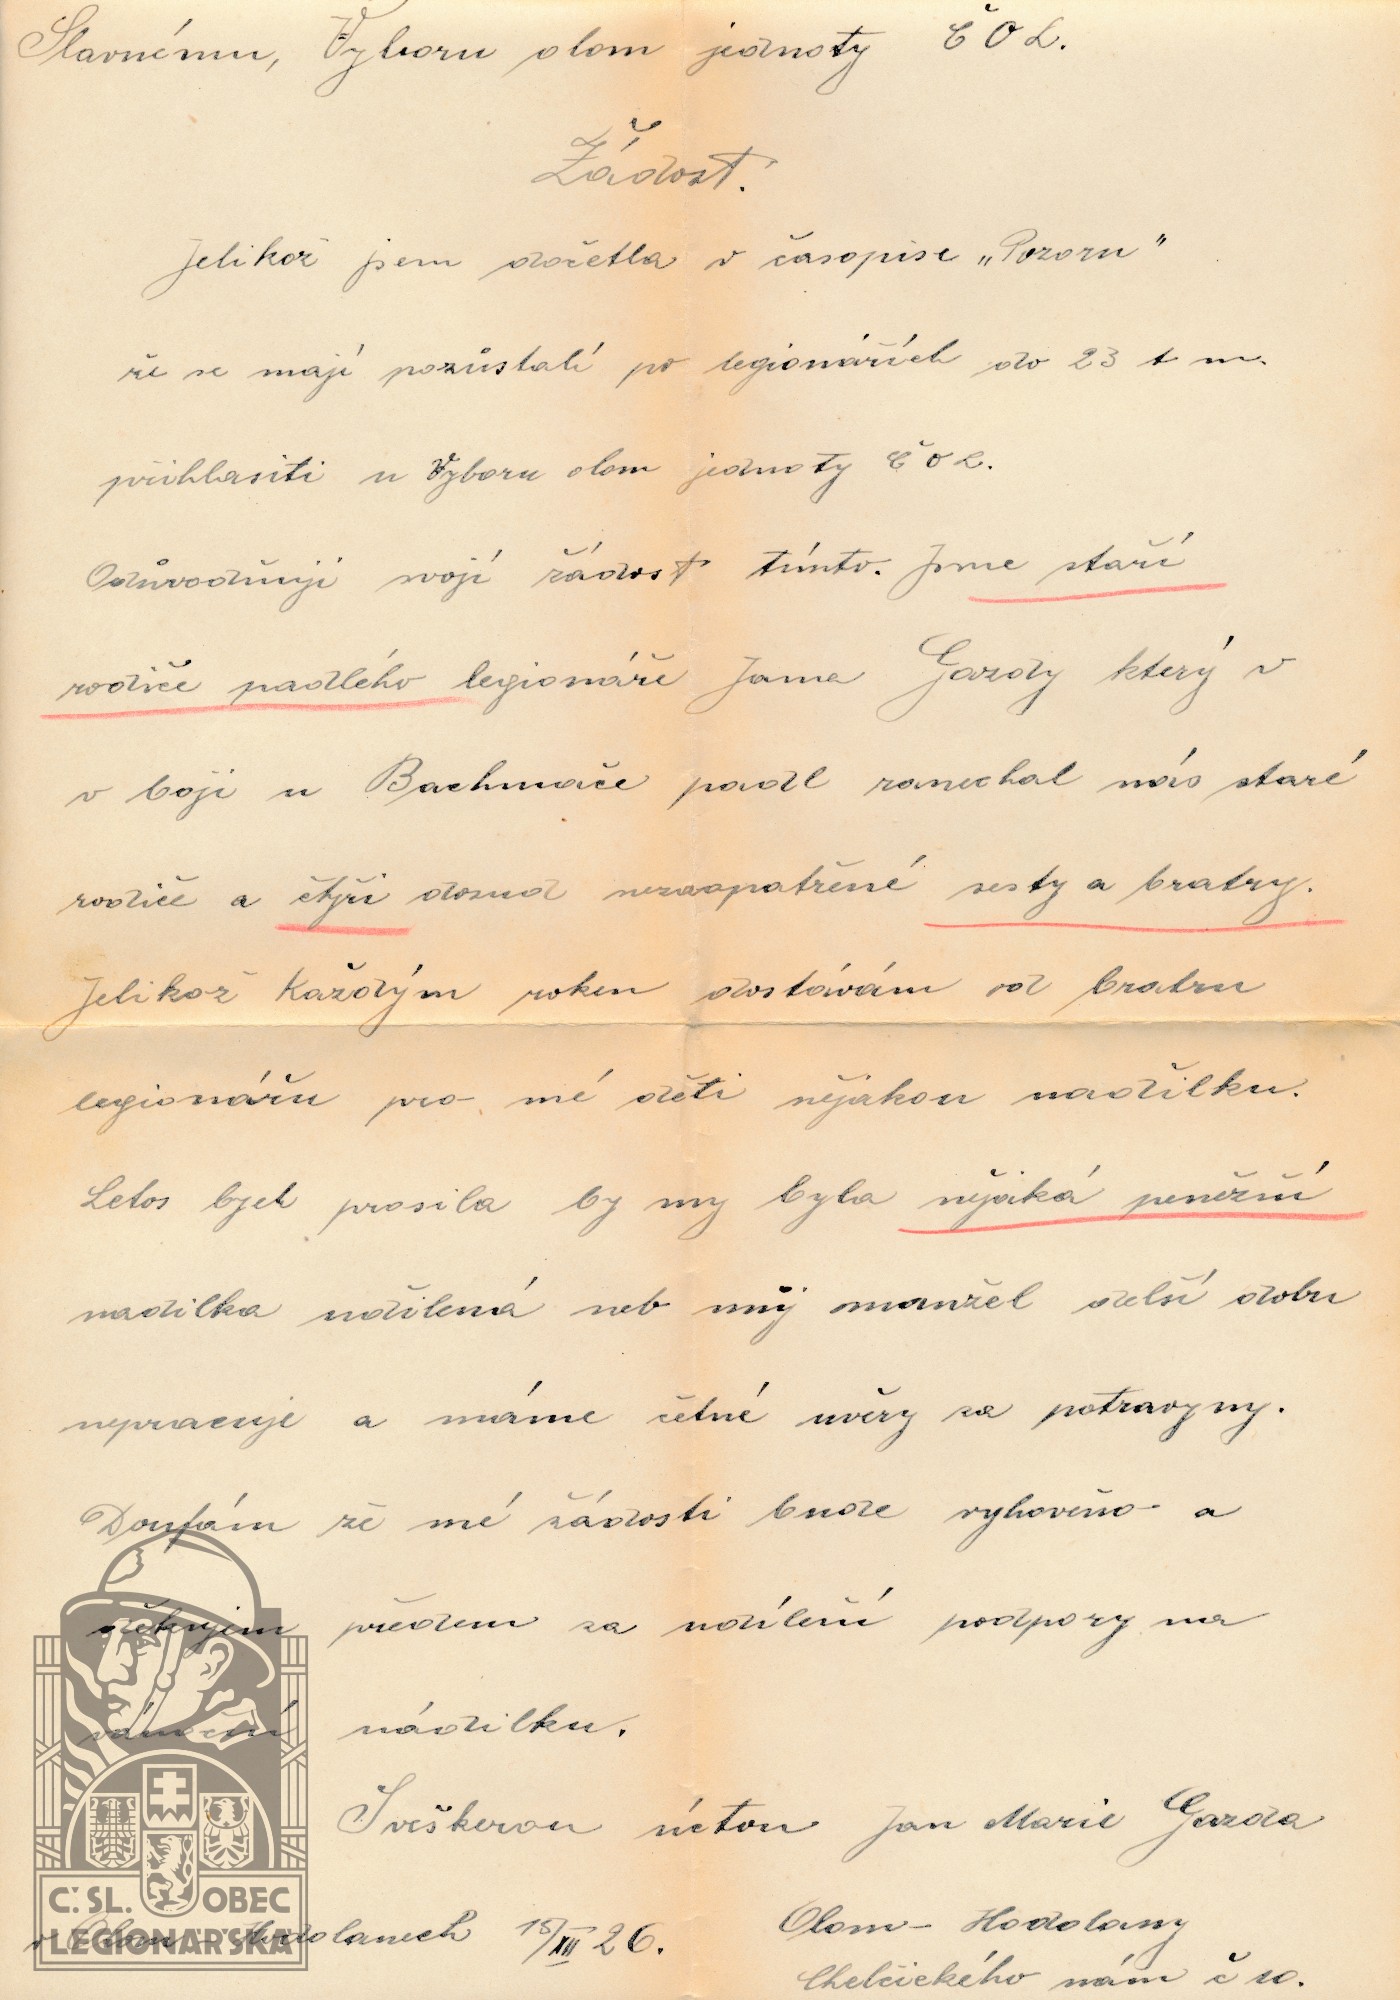 Slavnému, Vyboru olom jednoty Č O L.
Žádost.
Jelikož jsem dočetla v časopise „Pozoru"
že se mají pozůstalí po legionářích do 23 t m.
přihlasiti u Vyboru olom jednoty Č O L.
Odůvodňuji svoji žádost tímto. Jsme staří
rodiče padlého legionáře Jana Gazdy který v
v boji u Bachmače padl zanechal nás staré
rodiče a čtyři dosud nezaopatřené sesty a bratry.
Jelikož každým rokem dostávám od bratru
legionářu pro mé děti nějakou nadílku.
Letos bych prosila by my byla nějáká peněžní
nadilka udílená neb můj manžel delší dobu
nepracuje a máme četné uvěry za potravyny.
Doufám že mé žádosti bude vyhověno a
děkujem předem za udílení podpory na
vánoční nádilku.
Sveškerou úctou Jan Marie Gazda
v Olom - Hodolanech 15/XII 26.
Olom - Hodolany
Chelčického nám č 10.
Č.SL. OBEC
LEGIONÁŘSKÁ